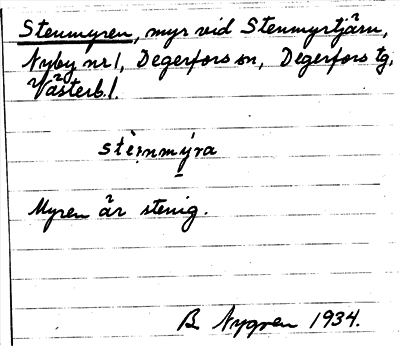 Stenmyren, myr vid Stenmyrtjärn,
Nyby nr 1, Degerfors sn, Degerfors tg,
Västerb. l.
stè:nmýra
Myren är stenig.
B. Nygren 1934.